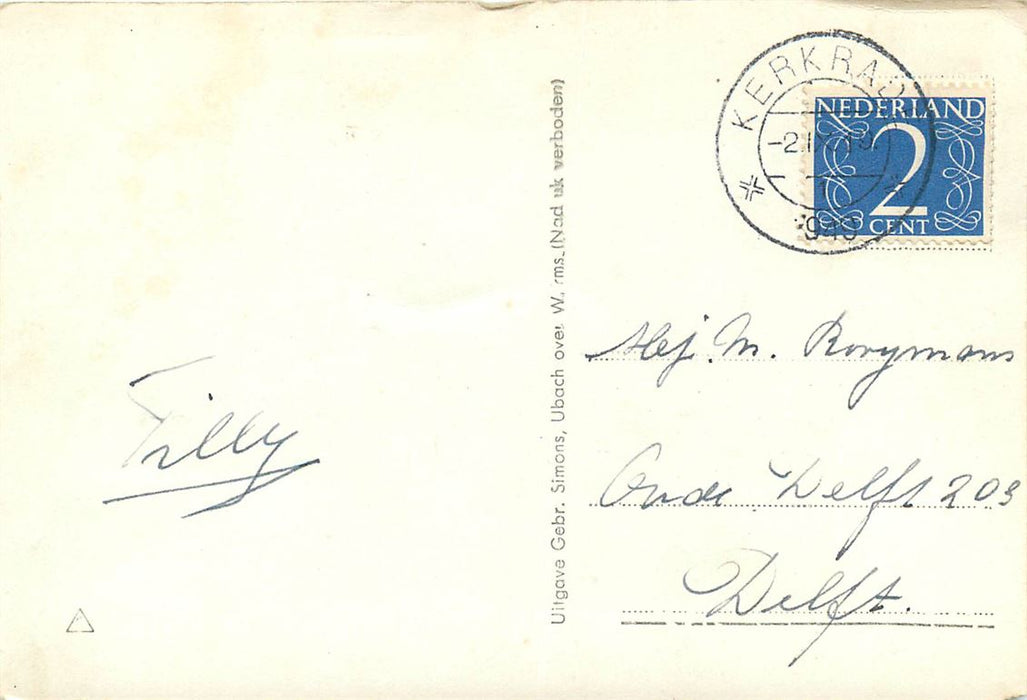 Tilly
Uitgave Gebr. Simons, Ubach over W. rms. (Nad uk verboden)
KERKRAD
-2.IX.
1949
NEDERLAND
2
CENT
Mej. M. Rooymans
Oude Delft 203
Delft.